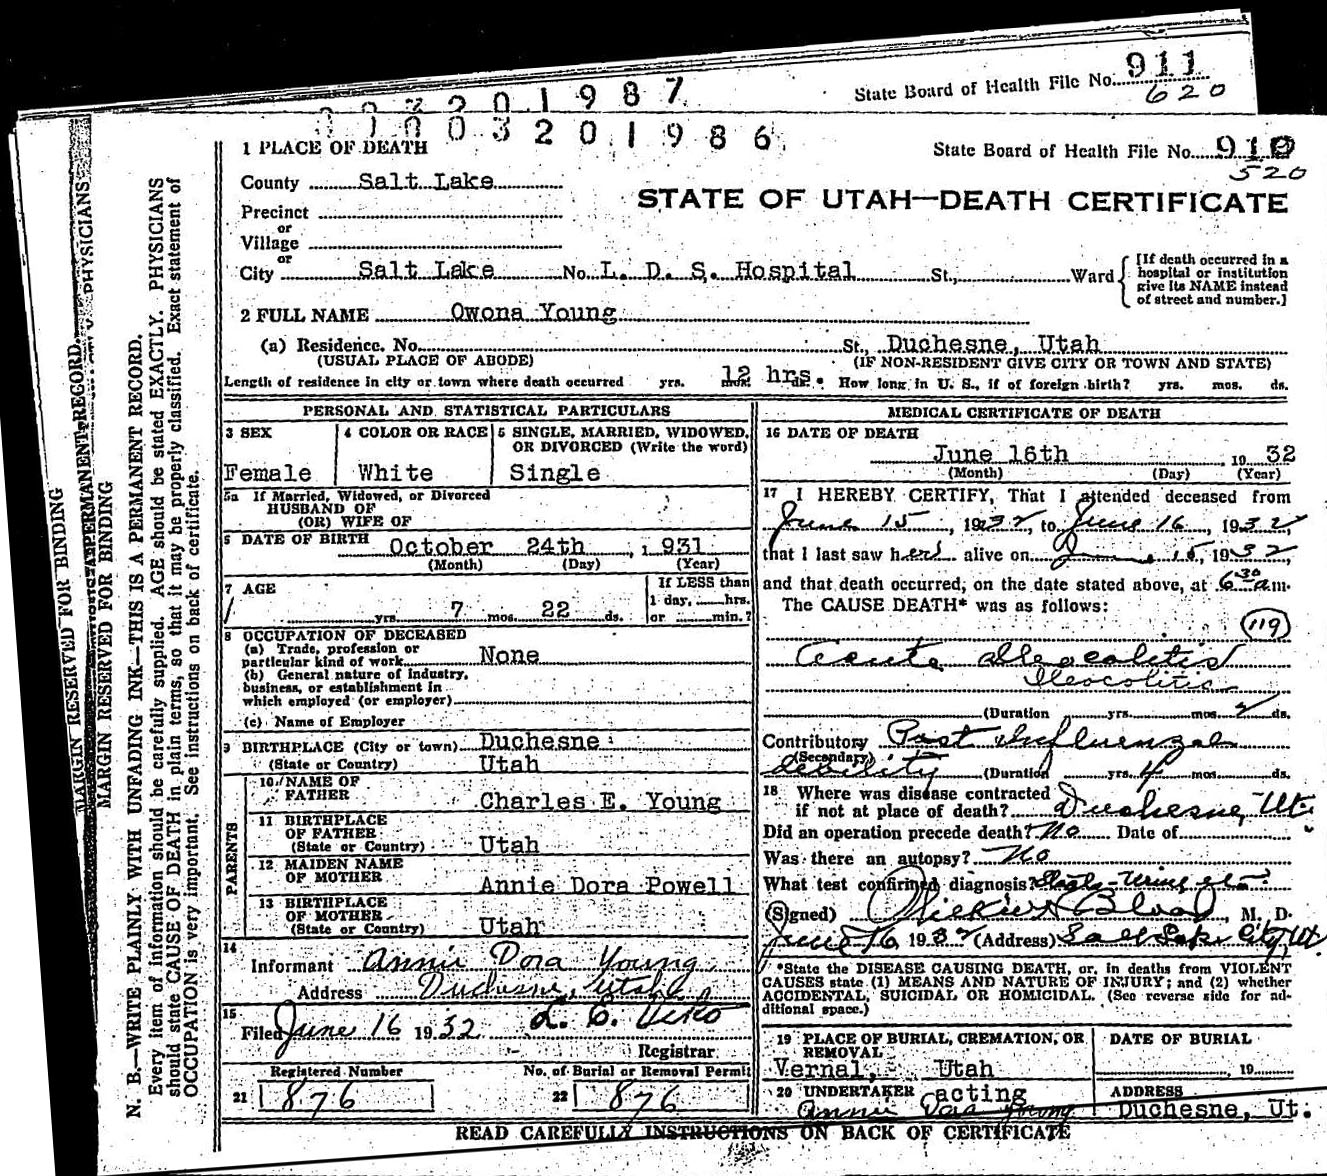 State Board of Health File No. 911
620
003201987
003201986
1 PLACE OF DEATH
State Board of Health File No. 910
520
County Salt Lake
STATE OF UTAH—DEATH CERTIFICATE
Precinct
or
Village
or
City Salt Lake No. L. D. S. Hospital St., Ward
[If death occurred in a hospital or institution give its NAME instead of street and number.]
2 FULL NAME Owona Young
(a) Residence. No. St., Duchesne, Utah
(USUAL PLACE OF ABODE) (IF NON-RESIDENT GIVE CITY OR TOWN AND STATE)
Length of residence in city or town where death occurred yrs. mos. 12 hrs. ds. How long in U. S., if of foreign birth? yrs. mos. ds.
PERSONAL AND STATISTICAL PARTICULARS
3 SEX 4 COLOR OR RACE 5 SINGLE, MARRIED, WIDOWED,
OR DIVORCED (Write the word)
Female White Single
5a If Married, Widowed, or Divorced
HUSBAND OF
(OR) WIFE OF
6 DATE OF BIRTH October 24th, 1931
(Month) (Day) (Year)
7 AGE If LESS than
1 day, hrs.
yrs. 7 mos. 22 ds. or min.?
8 OCCUPATION OF DECEASED
(a) Trade, profession or
particular kind of work None
(b) General nature of industry,
business, or establishment in
which employed (or employer)
(c) Name of Employer
9 BIRTHPLACE (City or town) Duchesne
(State or Country) Utah
PARENTS
10 NAME OF
FATHER Charles E. Young
11 BIRTHPLACE
OF FATHER
(State or Country) Utah
12 MAIDEN NAME
OF MOTHER Annie Dora Powell
13 BIRTHPLACE
OF MOTHER
(State or Country) Utah
14
Informant Annie Dora Young
Address Duchesne, Utah
15
Filed June 16 1932
Registrar
Registered Number No. of Burial or Removal Permit
21 876 22 876
MEDICAL CERTIFICATE OF DEATH
16 DATE OF DEATH
June 16th, 1932
(Month) (Day) (Year)
17 I HEREBY CERTIFY, That I attended deceased from
June 15, 1932, to June 16, 1932,
that I last saw her alive on June 15, 1932,
and that death occurred, on the date stated above, at 6 30 a m.
The CAUSE DEATH* was as follows:
119
Acute Ileocolitis
Ileocolitis
(Duration yrs. mos. 2 ds.
Contributory Post influenzal
(Secondary)
debility (Duration yrs. 4 mos. ds.
18 Where was disease contracted
if not at place of death? Duchesne, Ut.
Did an operation precede death? No Date of
Was there an autopsy? No
What test confirmed diagnosis?
(Signed) Blood, M. D.
June 16 1932 (Address) Salt Lake City, Ut
*State the DISEASE CAUSING DEATH, or, in deaths from VIOLENT
CAUSES state (1) MEANS AND NATURE OF INJURY; and (2) whether
ACCIDENTAL, SUICIDAL OR HOMICIDAL. (See reverse side for ad-
ditional space.)
19 PLACE OF BURIAL, CREMATION, OR
REMOVAL
Vernal, Utah
DATE OF BURIAL
, 19
20 UNDERTAKER acting
Annie Dora Young
ADDRESS
Duchesne, Ut.
READ CAREFULLY INSTRUCTIONS ON BACK OF CERTIFICATE
MARGIN RESERVED FOR BINDING
MARGIN RESERVED FOR BINDING
N. B.—WRITE PLAINLY WITH UNFADING INK—THIS IS A PERMANENT RECORD.
Every item of information should be carefully supplied. AGE should be stated EXACTLY. PHYSICIANS
should state CAUSE OF DEATH in plain terms, so that it may be properly classified. Exact statement of
OCCUPATION is very important. See instructions on back of certificate.